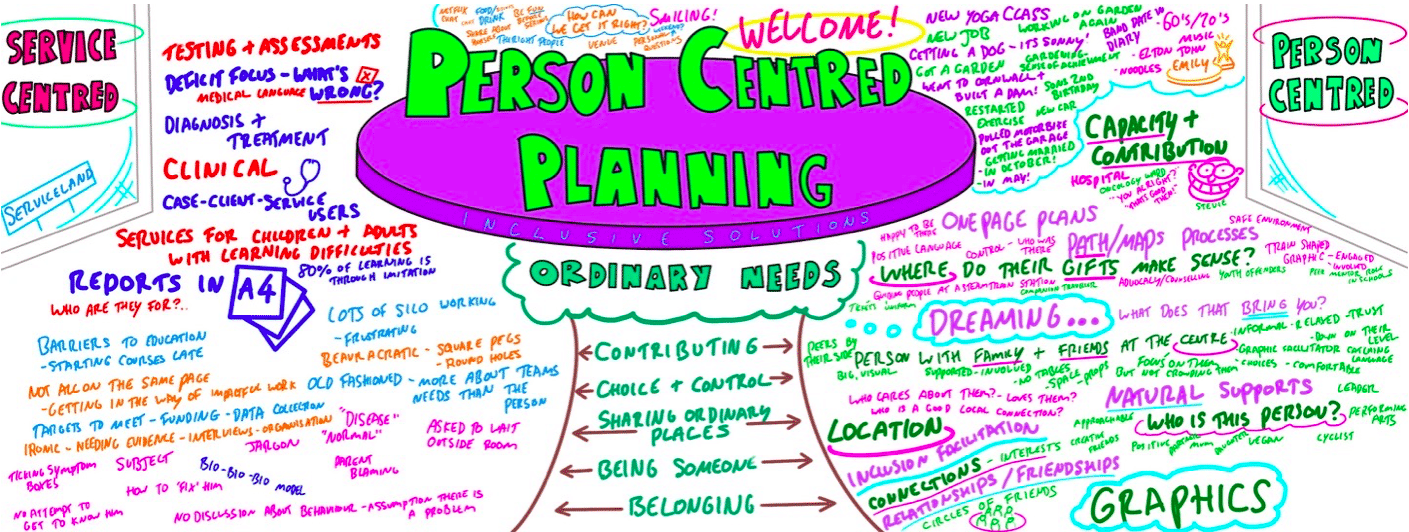 SERVICE
CENTRED
SERVICELAND
TESTING + ASSESSMENTS
DEFICIT FOCUS - WHAT'S
MEDICAL LANGUAGE WRONG?
DIAGNOSIS +
TREATMENT
CLINICAL
CASE-CLIENT-SERVICE
USERS
SERVICES FOR CHILDREN + ADULTS
WITH LEARNING DIFFICULTIES
REPORTS IN A4
80% OF LEARNING IS
THROUGH IMITATION
WHO ARE THEY FOR?..
LOTS OF SILO WORKING
- FRUSTRATING
BARRIERS TO EDUCATION
- STARTING COURSES LATE
BEAURACRATIC - SQUARE PEGS
- ROUND HOLES
NOT ALL ON THE SAME PAGE
- GETTING IN THE WAY OF IMPACTFUL WORK
OLD FASHIONED - MORE ABOUT TEAMS
NEEDS THAN THE
PERSON
TARGETS TO MEET - FUNDING - DATA COLLECTION
IRONIC - NEEDING EVIDENCE - INTERVIEWS - ORGANISATION
"DISEASE"
"NORMAL"
JARGON
ASKED TO WAIT
OUTSIDE ROOM
TICKING SYMPTOM
BOXES
SUBJECT
BIO-BIO-BIO MODEL
PARENT
BLAMING
HOW TO 'FIX' HIM
NO ATTEMPT TO
GET TO KNOW HIM
NO DISCUSSION ABOUT BEHAVIOUR - ASSUMPTION THERE IS
A PROBLEM
NETFLIX
CHAT
FOOD/
DRINK
BE FUN
BEFORE
SHARE ABOUT
THE RIGHT PEOPLE
HOW CAN
WE GET IT RIGHT?
VENUE
SMILING!
PERSONAL
QUESTIONS
WELCOME!
PERSON CENTRED
PLANNING
INCLUSIVE SOLUTIONS
ORDINARY NEEDS
CONTRIBUTING
CHOICE + CONTROL
SHARING ORDINARY
PLACES
BEING SOMEONE
BELONGING
NEW YOGA CLASS
NEW JOB
WORKING ON GARDEN
AGAIN
GETTING A DOG - ITS SONNY!
GOT A GARDEN
GARDENING-
SENSE OF ACHIEVEMENT
BAND DATE IN
DIARY
- 60'S/70'S
MUSIC
- ELTON JOHN
- NOODLES
EMILY
WENT TO CORNWALL +
BUILT A DAM!
SONS 2ND
BIRTHDAY
RESTARTED
EXERCISE
NEW CAR
PULLED MOTORBIKE
OUT THE GARAGE
GETTING MARRIED
- IN OCTOBER!
- IN MAY!
CAPACITY +
CONTRIBUTION
HOSPITAL
ONCOLOGY WARD
"YOU ALRIGHT?"
"THATS GOOD
THEN!"
STEVIE
PERSON
CENTRED
HAPPY TO BE
THERE
ONE PAGE PLANS
POSITIVE LANGUAGE
CONTROL - WHO WAS
THERE
PATH/MAPS PROCESSES
SAFE ENVIRONMENT
WHERE DO THEIR GIFTS MAKE SENSE?
GUIDING PEOPLE AT A STEAM TRAIN STATION
ADVOCACY/COUNSELLING
YOUTH OFFENDERS
TRAIN SHAPED
GRAPHIC - ENGAGED
INVOLVED
PEER MENTOR ROLE
IN SCHOOLS
DREAMING...
WHAT DOES THAT BRING YOU?
PEERS BY
THEIR SIDE
BIG, VISUAL
PERSON WITH FAMILY + FRIENDS AT THE CENTRE
SUPPORTED - INVOLVED
- NO TABLES
- SPACE - PROPS
- INFORMAL - RELAXED - TRUST
- DOWN ON THEIR
LEVEL
FOCUS ON THEM
BUT NOT CROWDING THEM
- GRAPHIC FACILITATOR CHECKING
LANGUAGE
- CHOICES - COMFORTABLE
WHO CARES ABOUT THEM? - LOVES THEM?
WHO IS A GOOD LOCAL CONNECTION?
NATURAL SUPPORTS
LEADER
LOCATION
APPROACHABLE
WHO IS THIS PERSON?
PERFORMING
ARTS
INCLUSION FACILITATION
CONNECTIONS - INTERESTS
CREATIVE
FRIENDS
POSITIVE
MUM
DAUGHTER
VEGAN
CYCLIST
RELATIONSHIPS / FRIENDSHIPS
CIRCLES OF FRIENDS
GRAPHICS